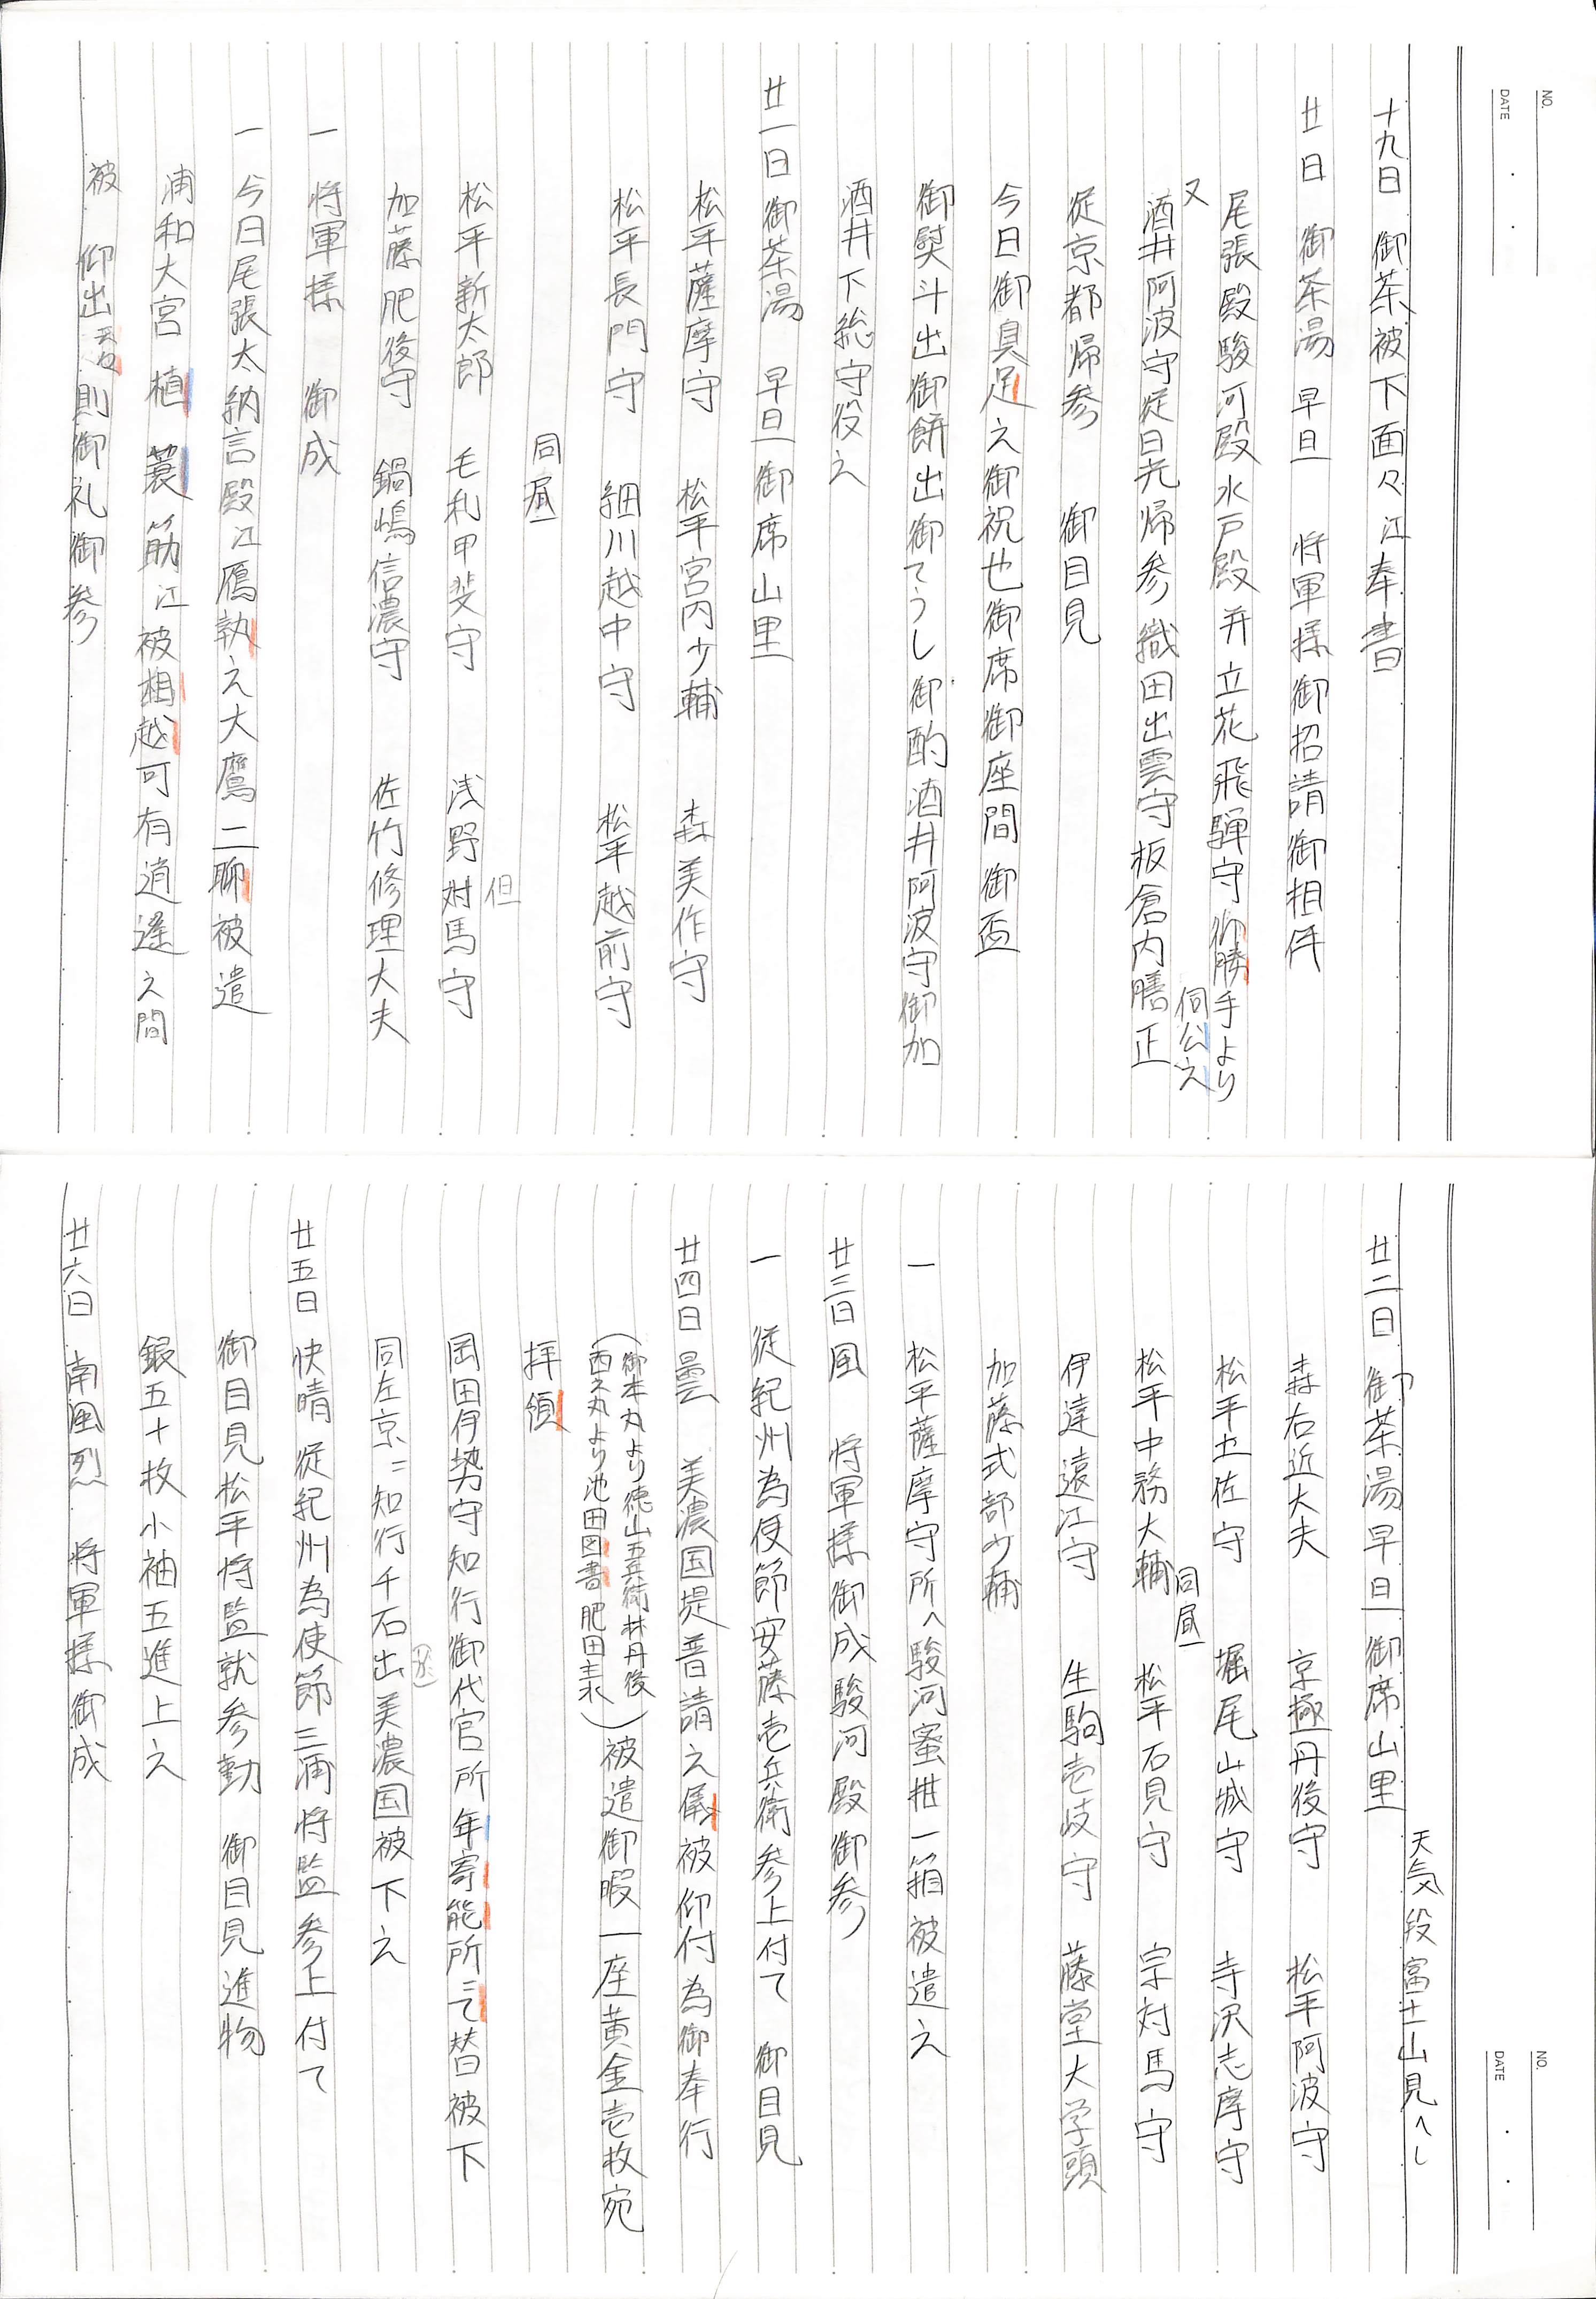 NO.
DATE
十九日 御茶被下面々江奉書
廿日 御茶湯 早旦 将軍様御招請御相伴
尾張殿駿河殿水戸殿并立花飛騨守御勝手より
伺公之
又
酒井阿波守従日光帰参 織田出雲守板倉内膳正
従京都帰参 御目見
今日御具足之御祝也御席御座間御盃
御熨斗出御餅出御てうし御酌酒井阿波守御加
酒井下総守役之
廿一日 御茶湯 早旦 御席山里
松平薩摩守 松平宮内少輔 森美作守
松平長門守 細川越中守 松平越前守
同昼
但
松平新太郎 毛利甲斐守 浅野対馬守
加藤肥後守 鍋嶋信濃守 佐竹修理大夫
一 将軍様 御成
一 今日尾張大納言殿江鴈執之大鷹二聊被遣
浦和大宮 植 蓑筋江被相越可有逍遙之間
被 仰出 則御礼御参
NO.
DATE
天気段富士山見へし
廿二日 御茶湯早旦 御席山里
森右近大夫 京極丹後守 松平阿波守
松平土佐守 堀尾山城守 寺沢志摩守
同昼
松平中務大輔 松平石見守 宗対馬守
伊達遠江守 生駒壱岐守 藤堂大学頭
加藤式部少輔
一 松平薩摩守所へ駿河蜜柑一箱被遣之
廿三日 風 将軍様御成駿河殿御参
一 従紀州為使節安藤壱兵衛参上付て 御目見
廿四日 曇 美濃国堤普請之儀被仰付為御奉行
(御本丸より徳山五兵衛井丹後
西之丸より池田図書肥田主水)被遣御暇一座黄金壱枚宛
拝領
岡田伊勢守知行御代官所年寄能所ニて替被下
同左京ニ知行千石出美濃国被下之
廿五日 快晴 従紀州為使節三浦将監参上付て
御目見松平将監就参勤 御目見進物
銀五十枚小袖五進上之
廿六日 南風烈 将軍様御成